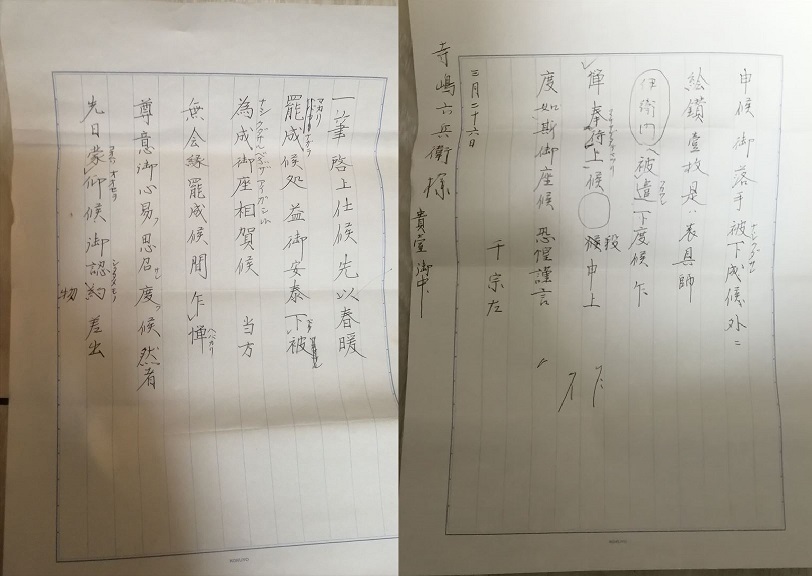 一筆啓上仕候先以春暖
罷成候処益御安泰下被
為成御座相賀候 当方
無会縁罷成候間乍憚
尊意御心易ク思召度ク候然者
先日蒙仰候御認約差出
物
申候御落手被下成候外ニ
絵鑚壹枚是ハ表具師
伊衛門へ被遣下度候乍
憚奉待上候 申上
殿
度如斯御座候恐惶謹言
千宗左
三月二十六日
寺嶋六兵衛様 貴堂御中
KOKUYO